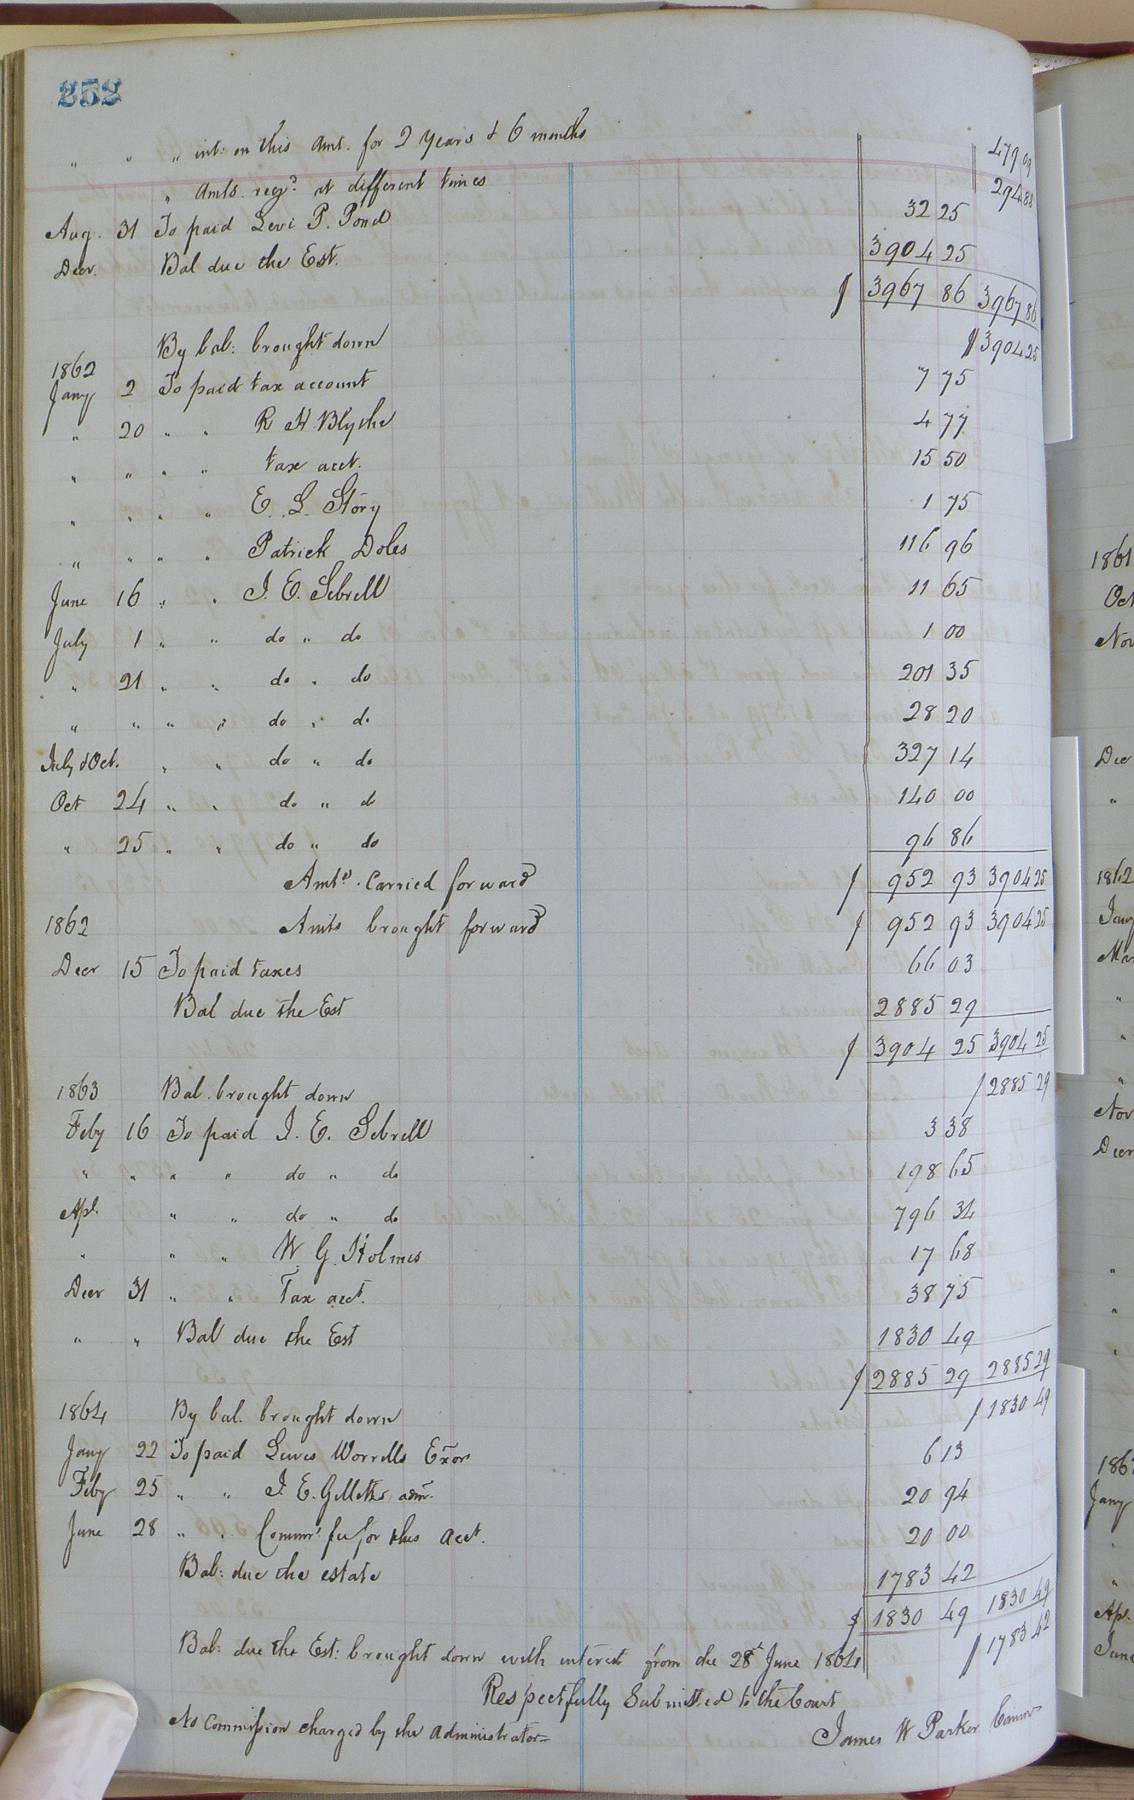 252
" " " int: on this Amt. for 2 Years & 6 months 479 09
" Amts. recd. at different times 294 88
Aug. 31 To paid Levi P. Pond 32 25
Decr. Bal due the Est. 3904 25
$ 3967 86 3967 86
By bal: brought down $ 3904 25
1862
Jany 2 To paid tax account 7 75
" 20 " " R H Blythe 4 77
" " " " tax acct. 15 50
" " " " E. L. Story 1 75
" " " " Patrick Doles 116 96
June 16 " " J. E. Sebrell 11 65
July 1 " " do " do 1 00
" 21 " " do " do 201 35
" " " " do " do 28 20
July & Oct. " " do " do 327 14
Oct 24 " " do " do 140 00
" 25 " " do " do 96 86
Amts. Carried forward $ 952 93 3904 25
1862 Amts brought forward $ 952 93 3904 25
Decr 15 To paid taxes 66 03
Bal due the Est 2885 29
$ 3904 25 3904 25
1863 Bal. brought down $ 2885 29
Feby 16 To paid J. E. Sebrell 3 38
" " " " do " do 198 65
Apl. " " do " do 796 34
" " " W. G. Holmes 17 68
Decr 31 " " Tax acct. 38 75
" " Bal due the Est 1830 49
$ 2885 29 2885 29
1864 By bal. brought down $ 1830 49
Jany 22 To paid Lewis Worrells Exor 6 13
Feby 25 " " J. E. Gilletts adm. 20 94
June 28 " " Commr's fee for this acct. 20 00
Bal: due the estate 1783 42
$ 1830 49 1830 49
Bal: due the Est: brought down with interest from the 28th June 1864 $ 1783 42
Respectfully Submitted to the Court
James W Parker Commr
No Commission charged by the Administrator
1861
Oct
Nov
Decr
"
1862
Jany
Mar
"
"
"
Nov
Decr
"
"
"
"
186
Jany
"
"
Apl.
June